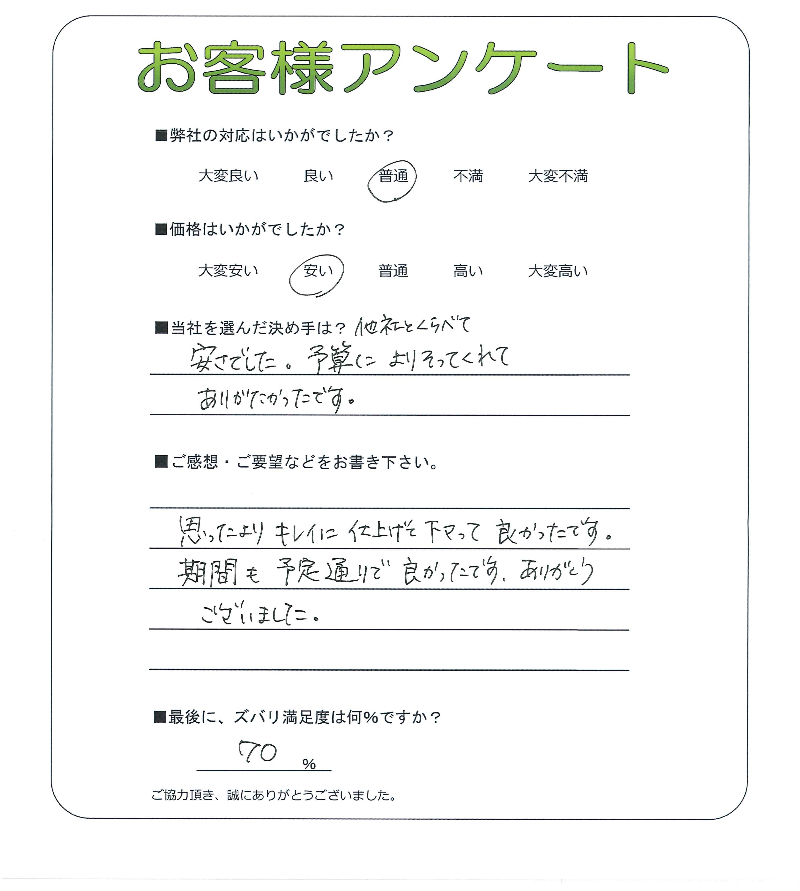 お客様アンケート
■弊社の対応はいかがでしたか？
大変良い 良い 普通 不満 大変不満
■価格はいかがでしたか？
大変安い 安い 普通 高い 大変高い
■当社を選んだ決め手は？ 他社とくらべて
安さでした。予算に よりそってくれて
ありがたかったです。
■ご感想・ご要望などをお書き下さい。
思ったより キレイに 仕上げて 下さって 良かったです。
期間も 予定通りで 良かったです、ありがとう
ございました。
■最後に、ズバリ満足度は何%ですか？
70 %
ご協力頂き、誠にありがとうございました。